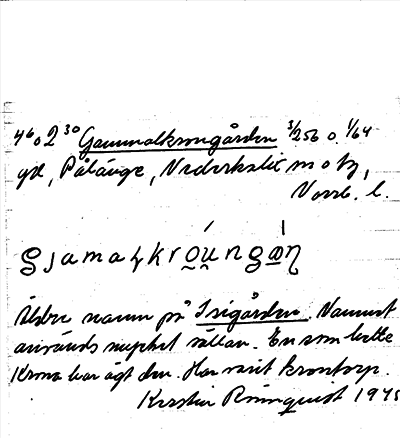 4⁶ o 2³⁰ Gammalkronsgården 3/256 o. 1/64
gd, Pålänge, Nederkalix
Norrb. l.
Äldre namn på Isigården. Namnet
används mycket sällan. En som hette
Krona har ägt den. Har varit krontorp.
Kerstin Rönnquist